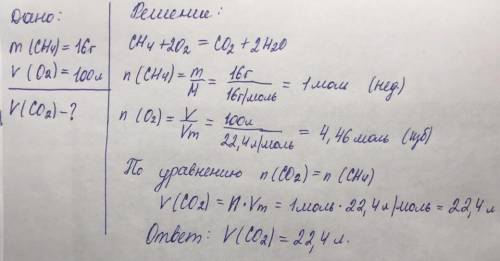 Дано:
m(CH4)=16г
V(O2)=100л
V(CO2)-?
Решение:
CH4+2O2=CO2+2H2O
n(CH4)=m/M=16г/16г/моль=1моль (нед)
n(O2)=V/Vm=100л/22,4л/моль=4,46моль (изб)
По уравнению n(CO2)=n(CH4)
V(CO2)=n·Vm=1моль·22,4л/моль=22,4л
Ответ: V(CO2)=22,4л.